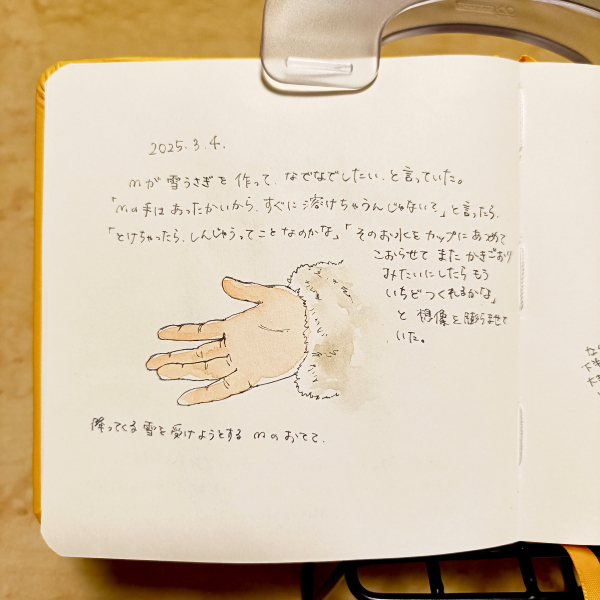 2025.3.4.
mが 雪うさぎを 作って、なでなでしたい、と言っていた。
「mの手は あったかいから、すぐに 溶けちゃうんじゃない?」と言ったら、
「とけちゃったら、しんじゃうってことなのかな」「そのお水を カップにあつめて
こおらせて また かきごおり
みたいにしたら もう
いちど つくれるかな」
と 想像を膨らませて
いた。
降ってくる 雪を 受けようとする mのおてて。